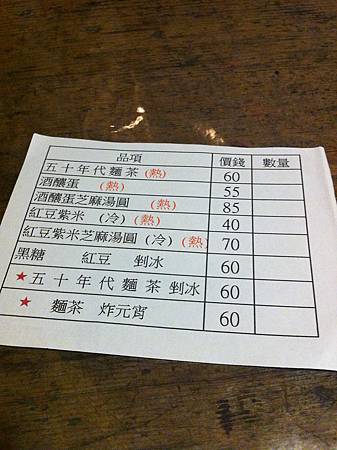 品項 價錢 數量
五十年代麵茶 (熱) 60
酒釀蛋 (熱) 55
酒釀蛋芝麻湯圓 (熱) 85
紅豆紫米 (冷) (熱) 40
紅豆紫米芝麻湯圓 (冷) (熱) 70
黑糖 紅豆 剉冰 60
★五十年代麵茶剉冰 60
★ 麵茶 炸元宵 60